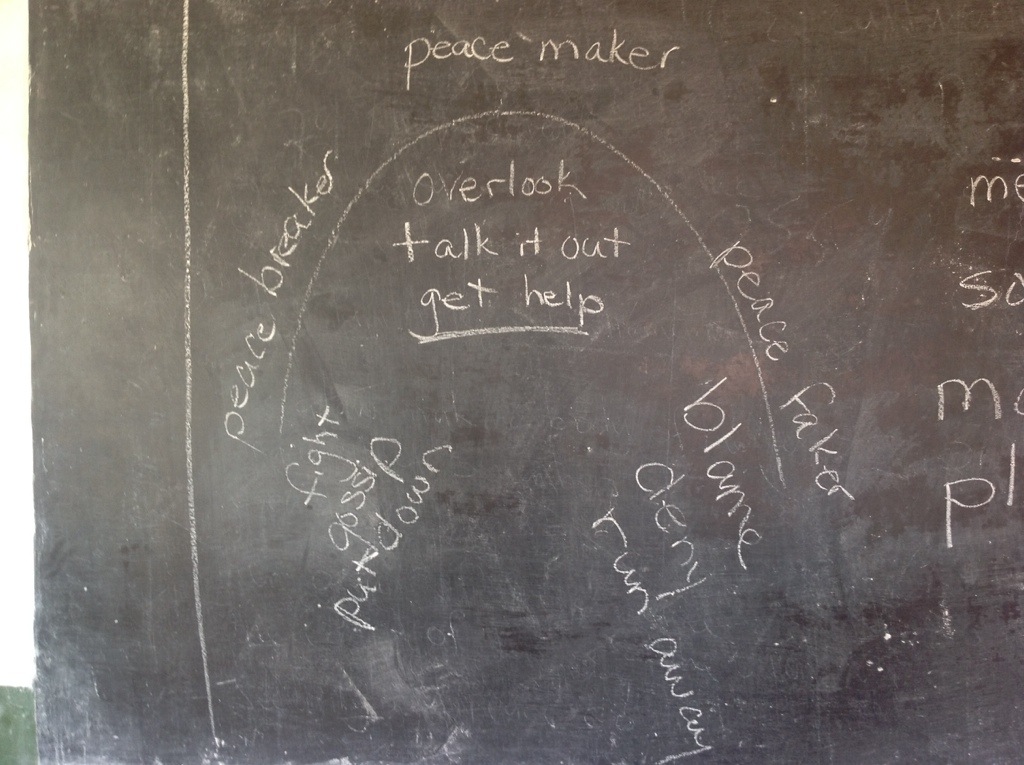 peace maker
peace breaker
overlook
talk it out
get help
peace faker
fight
gossip
put down
blame
deny
run away